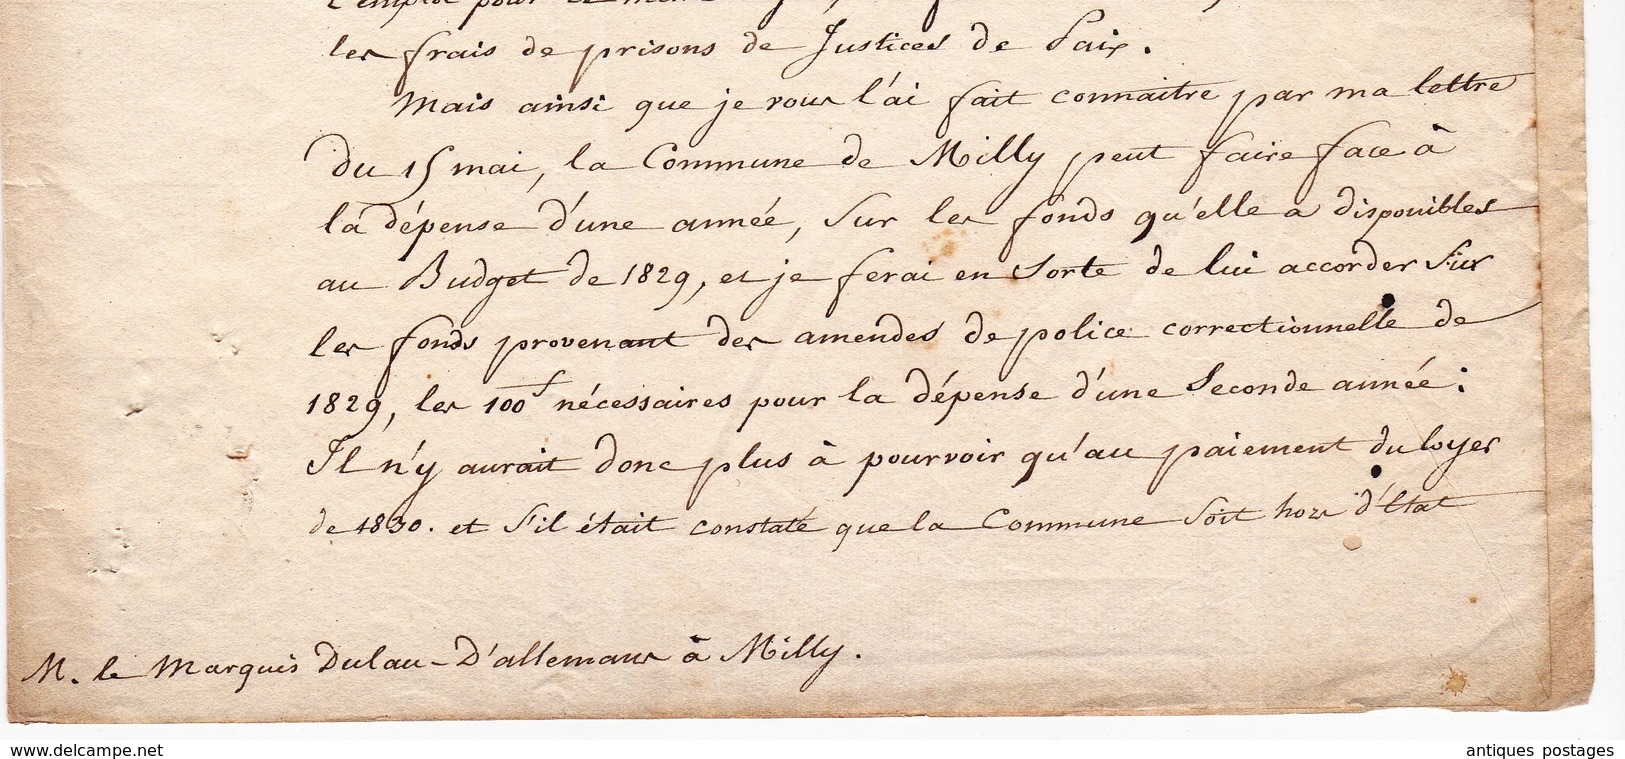 l'emploi pour
les frais de prisons de Justices de Paix.
Mais ainsi que je vous l'ai fait connaitre par ma lettre
du 15 mai, la Commune de Milly peut faire face à
la dépense d'une année, sur les fonds qu'elle a disponibles
au Budget de 1829, et je ferai en sorte de lui accorder sur
les fonds provenant des amendes de police correctionnelle de
1829, les 100f nécessaires pour la dépense d'une seconde année:
Il n'y aurait donc plus à pourvoir qu'au paiement du loyer
de 1830. et s'il était constaté que la Commune soit hors d'état
M. le Marquis Dulau-D'allemans à Milly.
www.delcampe.net
antiques postages